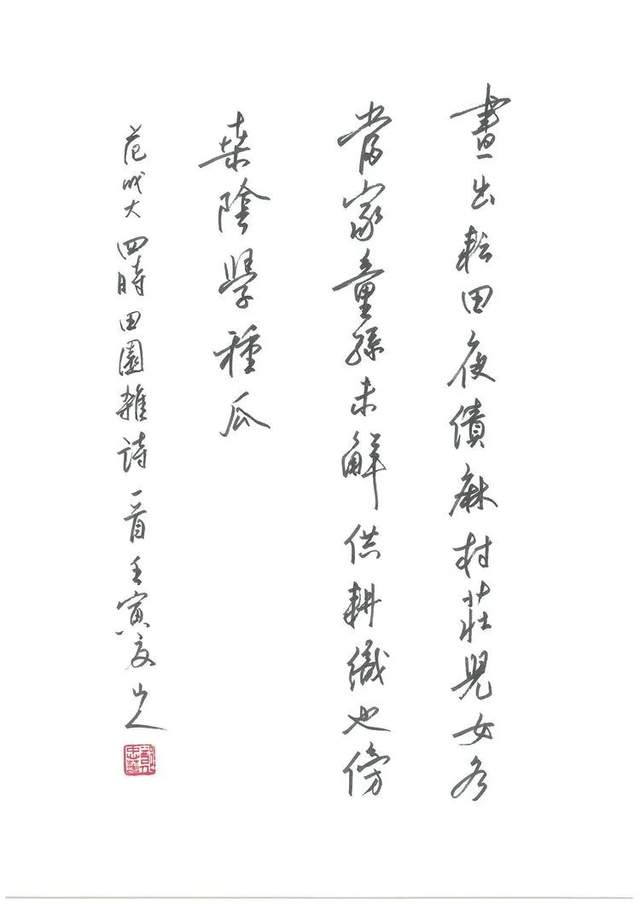 晝出耘田夜績麻村莊兒女各
當家童孫未解供耕織也傍
桑陰學種瓜
范成大四時田園雜詩一首壬寅夏山人